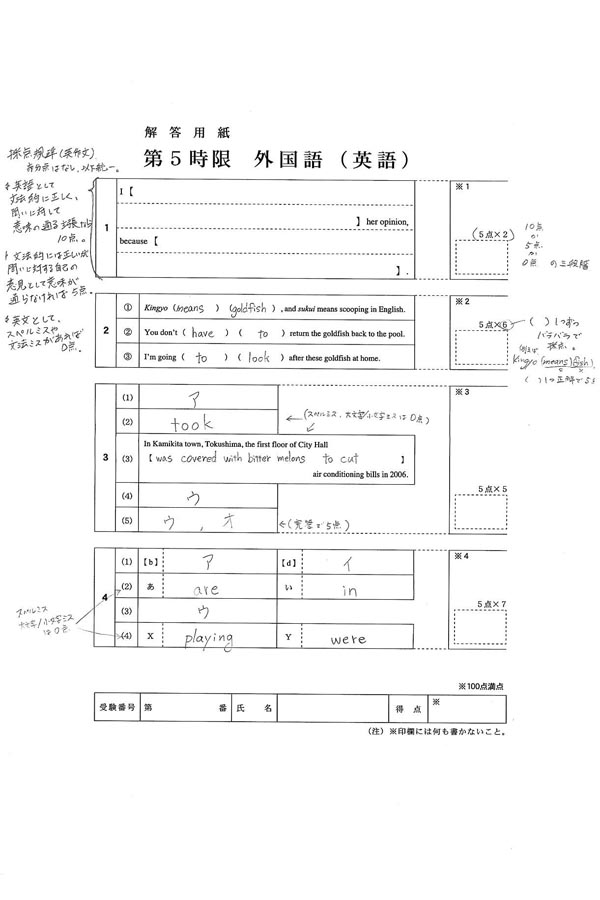 解答用紙
第５時限 外国語（英語）
採点規準(英作文)
部分点はなし、以下統一。
英語として
文法的に正しく、
問いに対して
意味の通る主張なら
10点。
文法的には正しいが
問いに対する自己の
意見として意味が
通らなければ5点。
英文として、
スペルミスや
文法ミスがあれば
0点。
1
I【
】her opinion,
because【
】.
※1
(5点×2)
10点
か
5点
か
0点 の三段階
2
① Kingyo (means) (goldfish), and sukui means scooping in English.
② You don't (have) (to) return the goldfish back to the pool.
③ I'm going (to) (look) after these goldfish at home.
※2
5点×6
( ) 1つずつ
バラバラで
採点。
例えば
Kingyo (means)(fish)
○ ×
( ) 1つ正解で5
3
(1) ア
(2) took
←(スペルミス、大文字/小文字ミスは0点)
(3) In Kamikita town, Tokushima, the first floor of City Hall
【was covered with bitter melons to cut 】
air conditioning bills in 2006.
(4) ウ
(5) ウ , オ
←(完答で5点)
※3
5点×5
4
(1)【b】ア【d】イ
(2) あ are い in
(3) ウ
(4) X playing Y were
スペルミス
大文字/小文字ミス
は0点
※4
5点×7
※100点満点
受験番号 第 番 氏名 得点 ※
（注）※印欄には何も書かないこと。